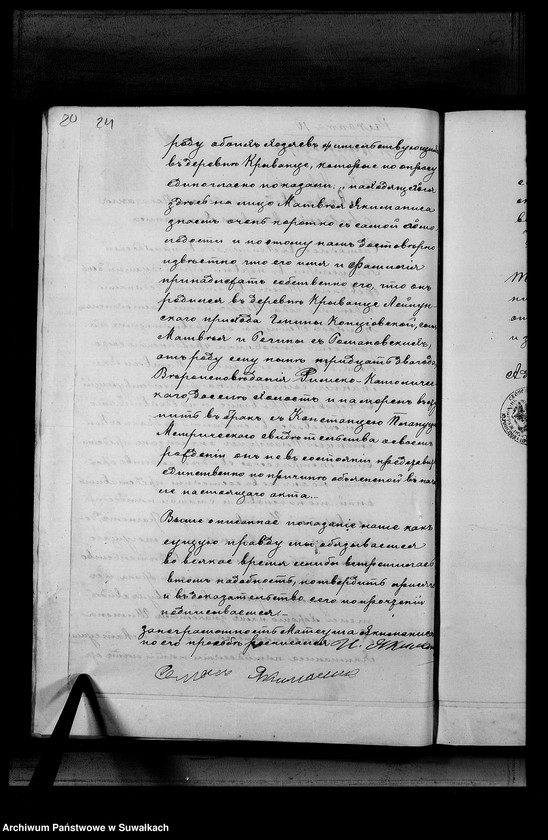 20 24
роду обоихъ хозяевъ жительствующихъ
въ деревнѣ Крыванце, которые по опросу
единогласно показали, „находящагося
здѣсь на лицо Матвѣя Якиманиса
знаетъ очень коротко съ самой его мо
лодости и поэтому намъ достовѣрно
извѣстно что его имя и фамилія
принадлежатъ собственно его, что онъ
родился въ деревнѣ Крыванце Лейпун
скаго прихода Гмины Копціовской, сынъ
Матвѣя и Регины съ
отъ роду ему нынѣ тридцать два года
Вѣроисповѣданія Римско-Католичес
каго доселѣ холостъ и намѣренъ всту
пить въ бракъ съ Констанціею
Метрическаго свидѣтельства о своемъ
рожденіи онъ не въ состояніи представить
единственно по причинѣ объясненной въ нача
лѣ настоящаго акта.
Выше описанное показаніе наше какъ
сущую правду мы обязываемся
во всякое время еслибы встрѣтилась
въ томъ надобность, потвердить присягою
и въ доказательство сего по прочтеніи
подписываемся:-
За неграмотность Матеуша Якиманиса
по его просьбѣ росписался И.
Якиманис
Archiwum Państwowe w Suwałkach